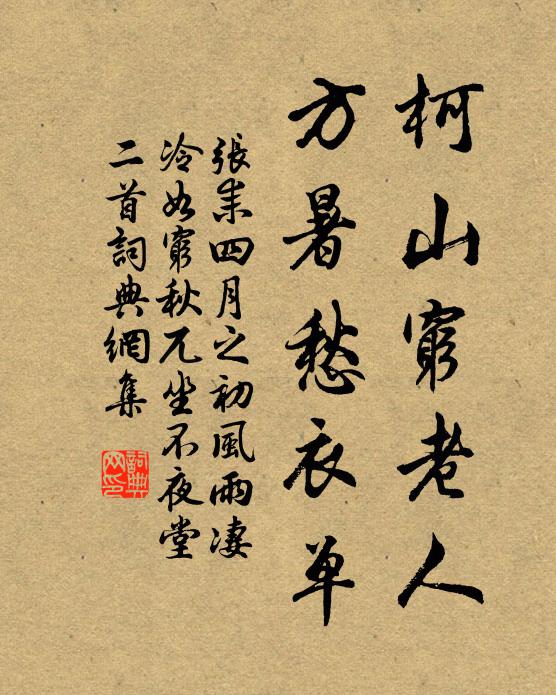 柯山窮老人
方暑愁衣单
張耒四月之初風雨凄
冷如窮秋兀坐不夜堂
二首詞典網集
詞典网印